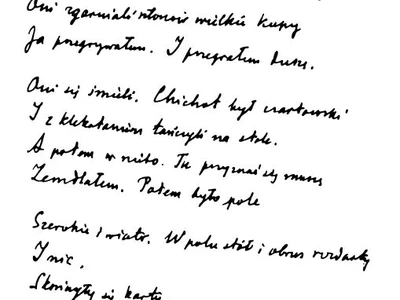 Oni zgarniali słowie wielkie kupy
Ja przegrywałem. I przegrałem duszę.
Oni się śmieli. Chichot był czartowski
I z klekotaniem tańczyli na stole.
A potem w niebo. Tu przyznać się muszę
Zemdlałem. Potem było pole
Szerokie i wiatr. W polu stół i obrus rozdarty
I nic.
się karty